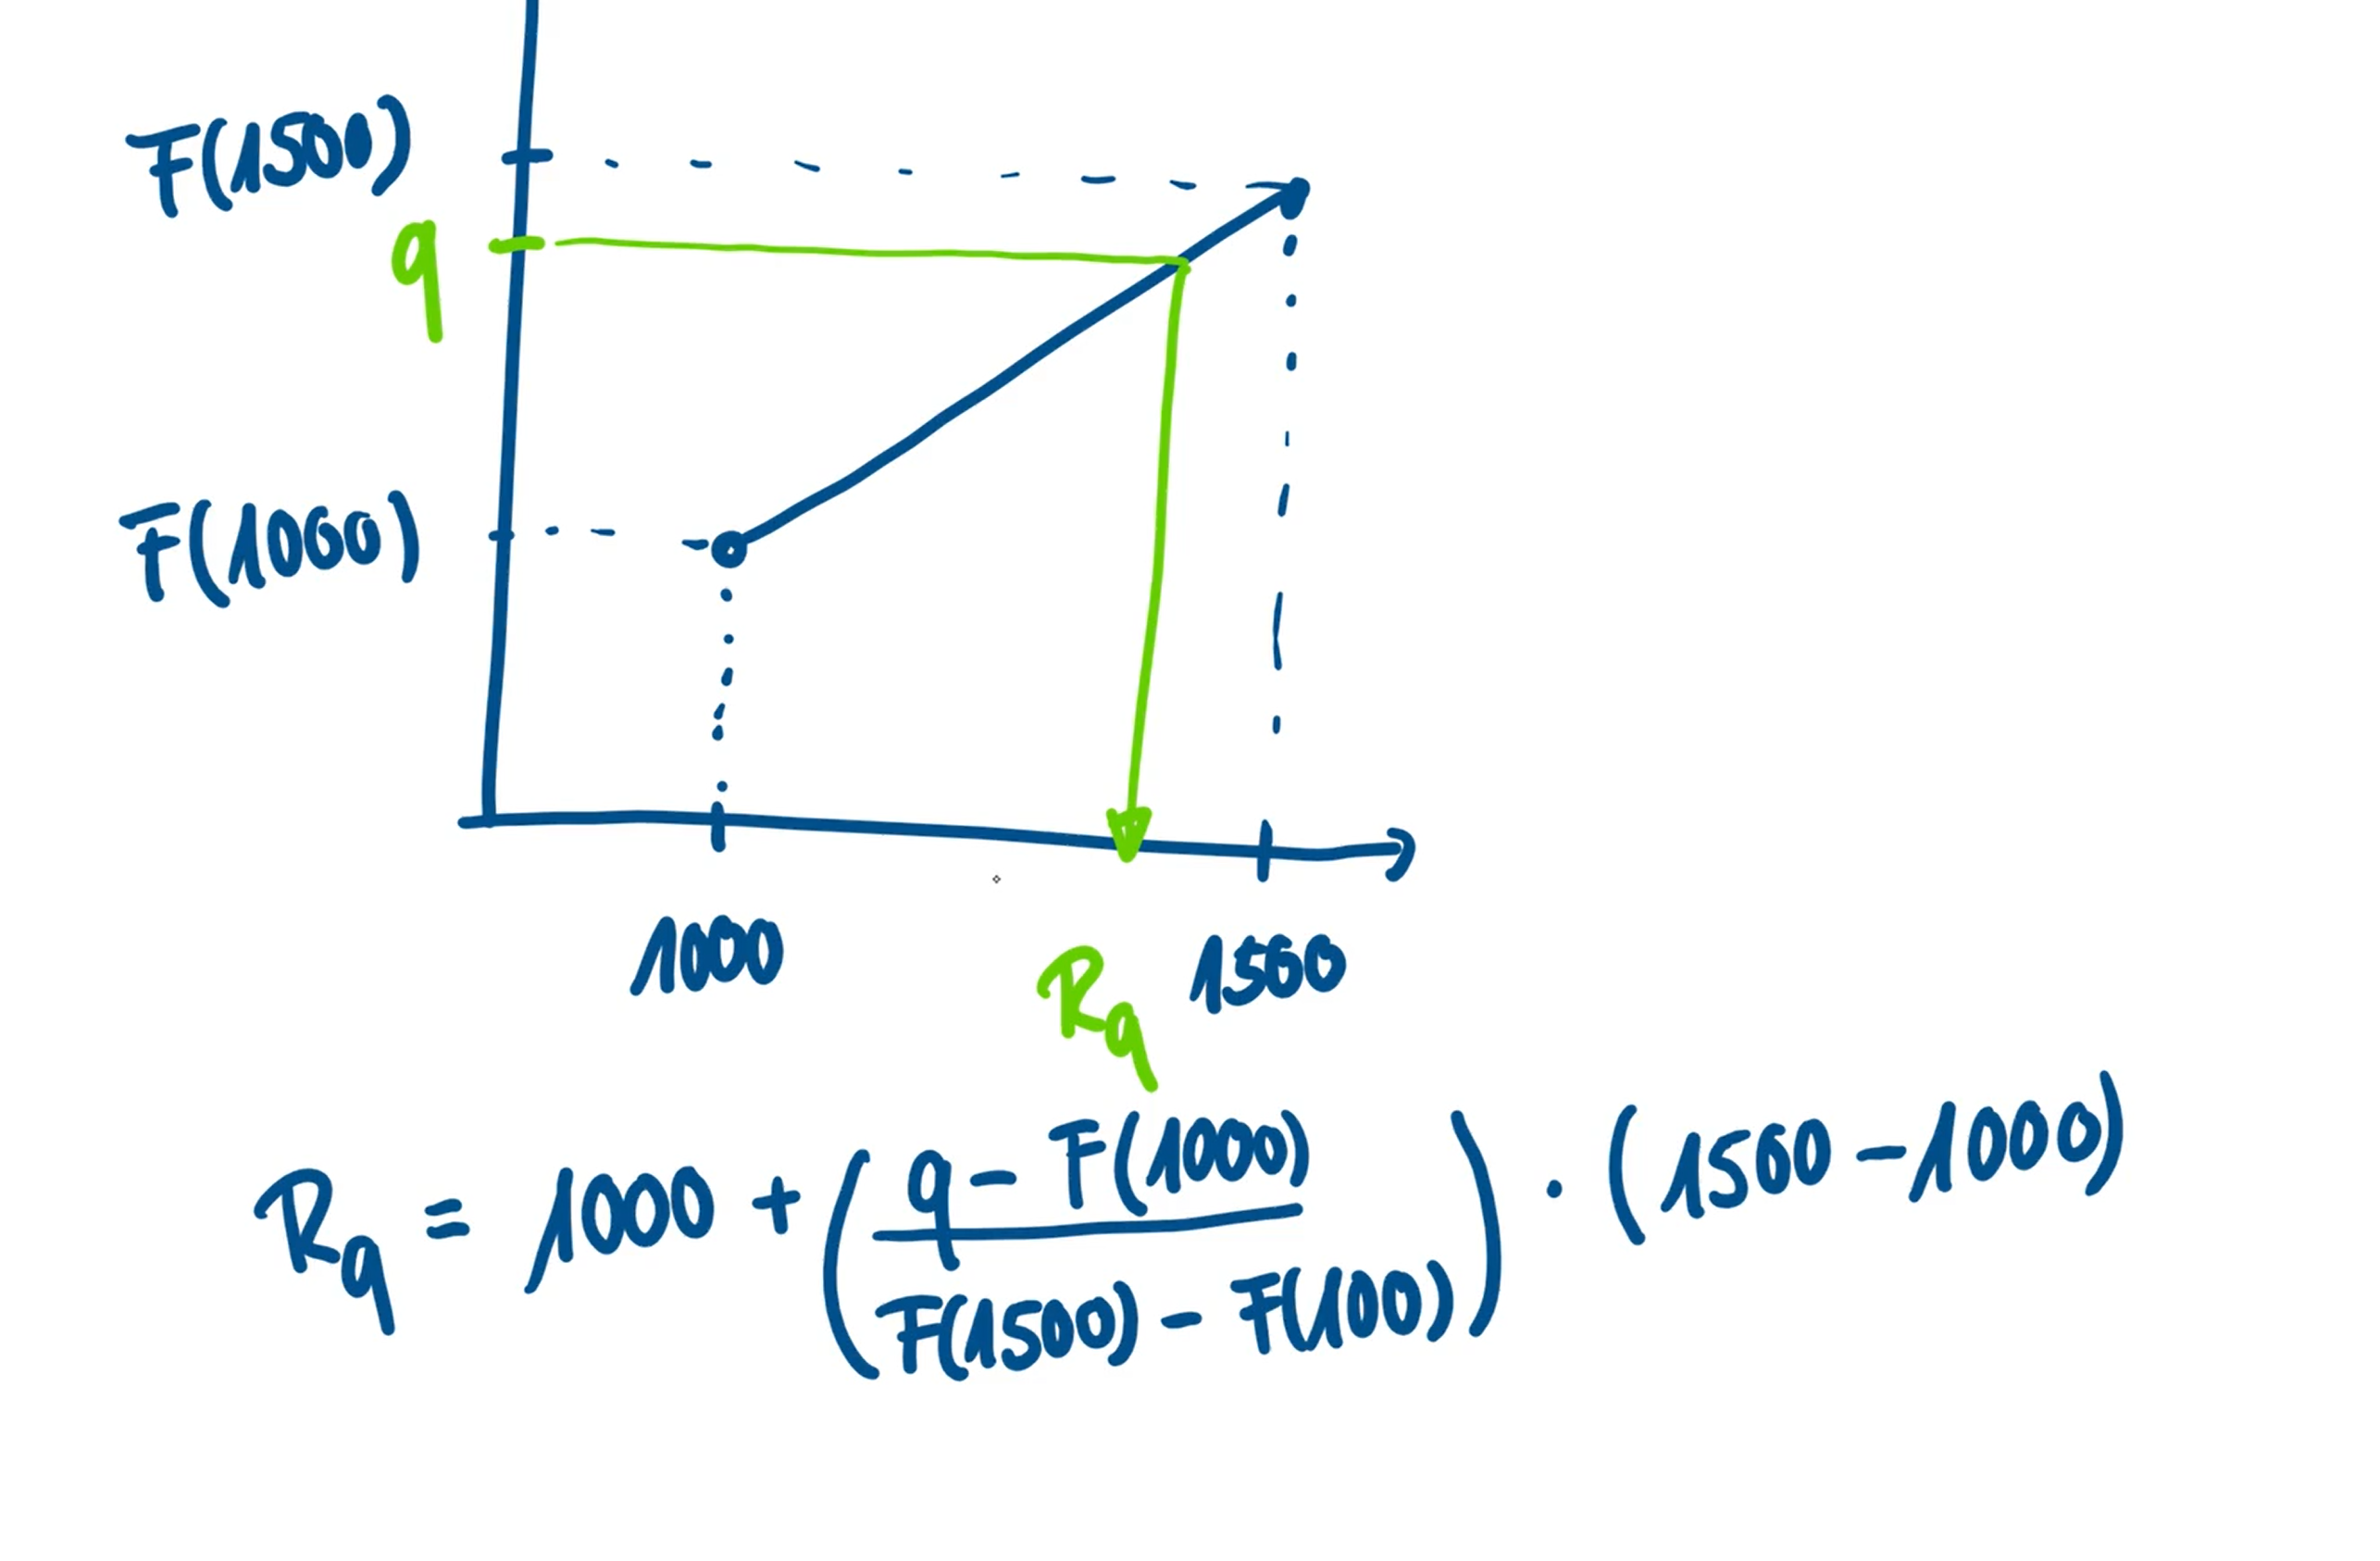 F(1500)
q
F(1000)
1000
Rq
1500
Rq = 1000 + ( q - F(1000) / F(1500) - F(100) ) · (1500 - 1000)